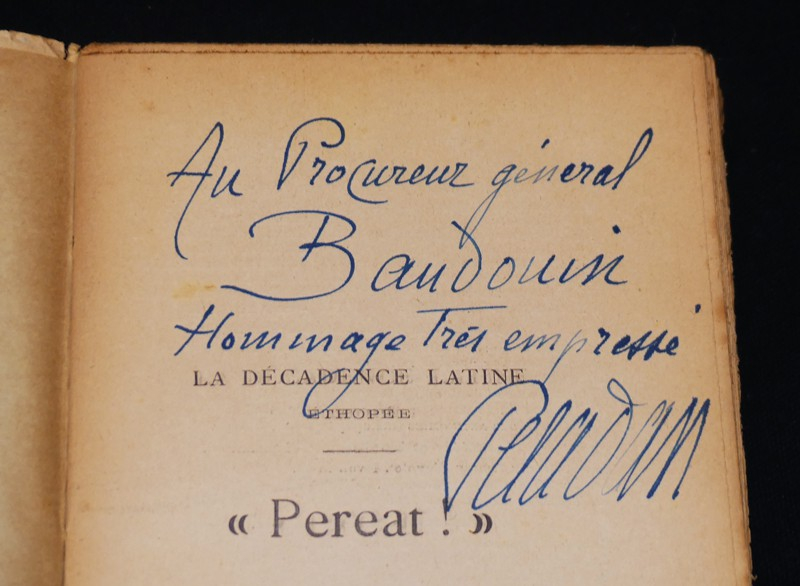 Au Procureur général
Baudouin
Hommage Très empressé
LA DÉCADENCE LATINE
ÉTHOPÉE
Peladan
« Pereat ! »